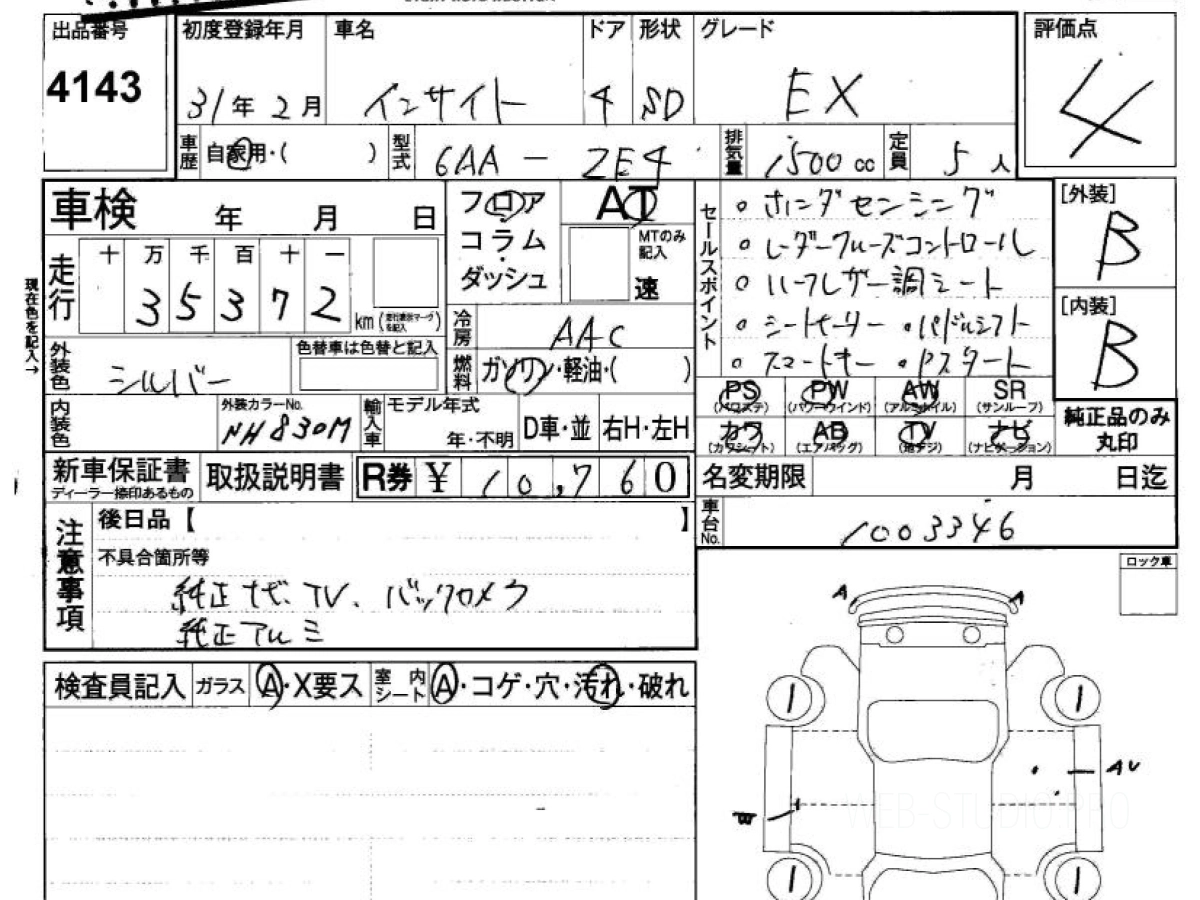 出品番号 初度登録年月 車名 ドア 形状 グレード 評価点
4143 31年2月 インサイト 4 SD EX 4
車歴 自家用・( ) 型式 6AA-ZE4 排気量 1500cc 定員 5人
車検 年 月 日
フロア コラム ダッシュ
AT
MTのみ記入 速
セールスポイント
○ホンダセンシング
○レーダークルーズコントロール
○ハーフレザー調シート
○シートヒーター ○パドルシフト
○スマートキー ○Pスタート
[外装] B
[内装] B
現在色を記入→
走行 十 万 千 百 十 一
35372 km (走行表示マークを記入)
冷房 AAC
外装色 シルバー 色替車は色替と記入
燃料 ガソリン・軽油・( )
PS (パワステ) PW (パワーウインド) AW (アルミホイル) SR (サンルーフ)
カワ (カワシート) AB (エアバッグ) TV (地デジ) ナビ (ナビゲーション)
純正品のみ丸印
内装色 外装カラーNo. NH830M
輸入車 モデル年式 年・不明 D車・並 右H・左H
新車保証書 ディーラー捺印あるもの 取扱説明書 R券 ¥10,760
名変期限 月 日迄
車台No. 1003346
注意事項
後日品【 】
不具合箇所等
純正ナビ、TV、バックカメラ
純正アルミ
ロック車
A A
検査員記入 ガラス A・X要ス 室内シート A・コゲ・穴・汚れ・破れ
1 1
AU
W
WEB-STUDIO.PRO
1 1